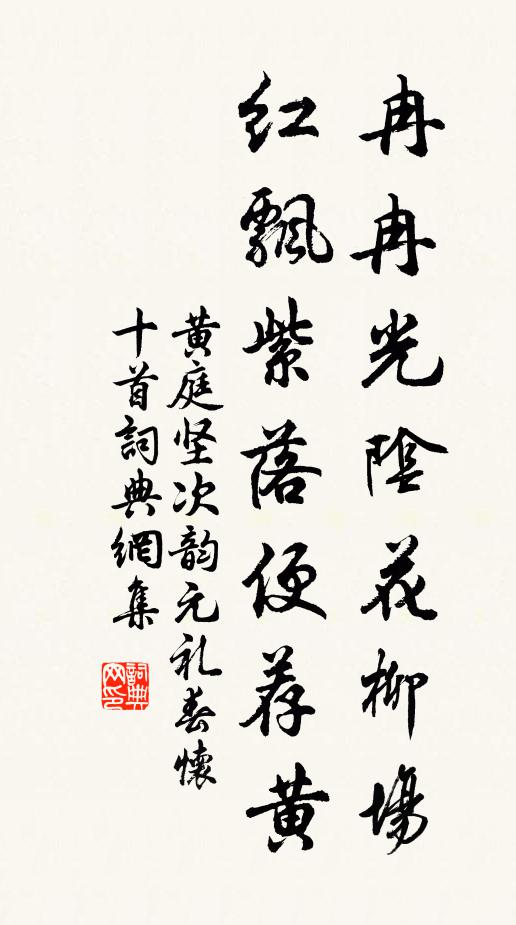 冉冉光陰花柳場
紅飄紫落便荐黃
黃庭坚次韵元礼春懷
十首詞典網集
詞典網印